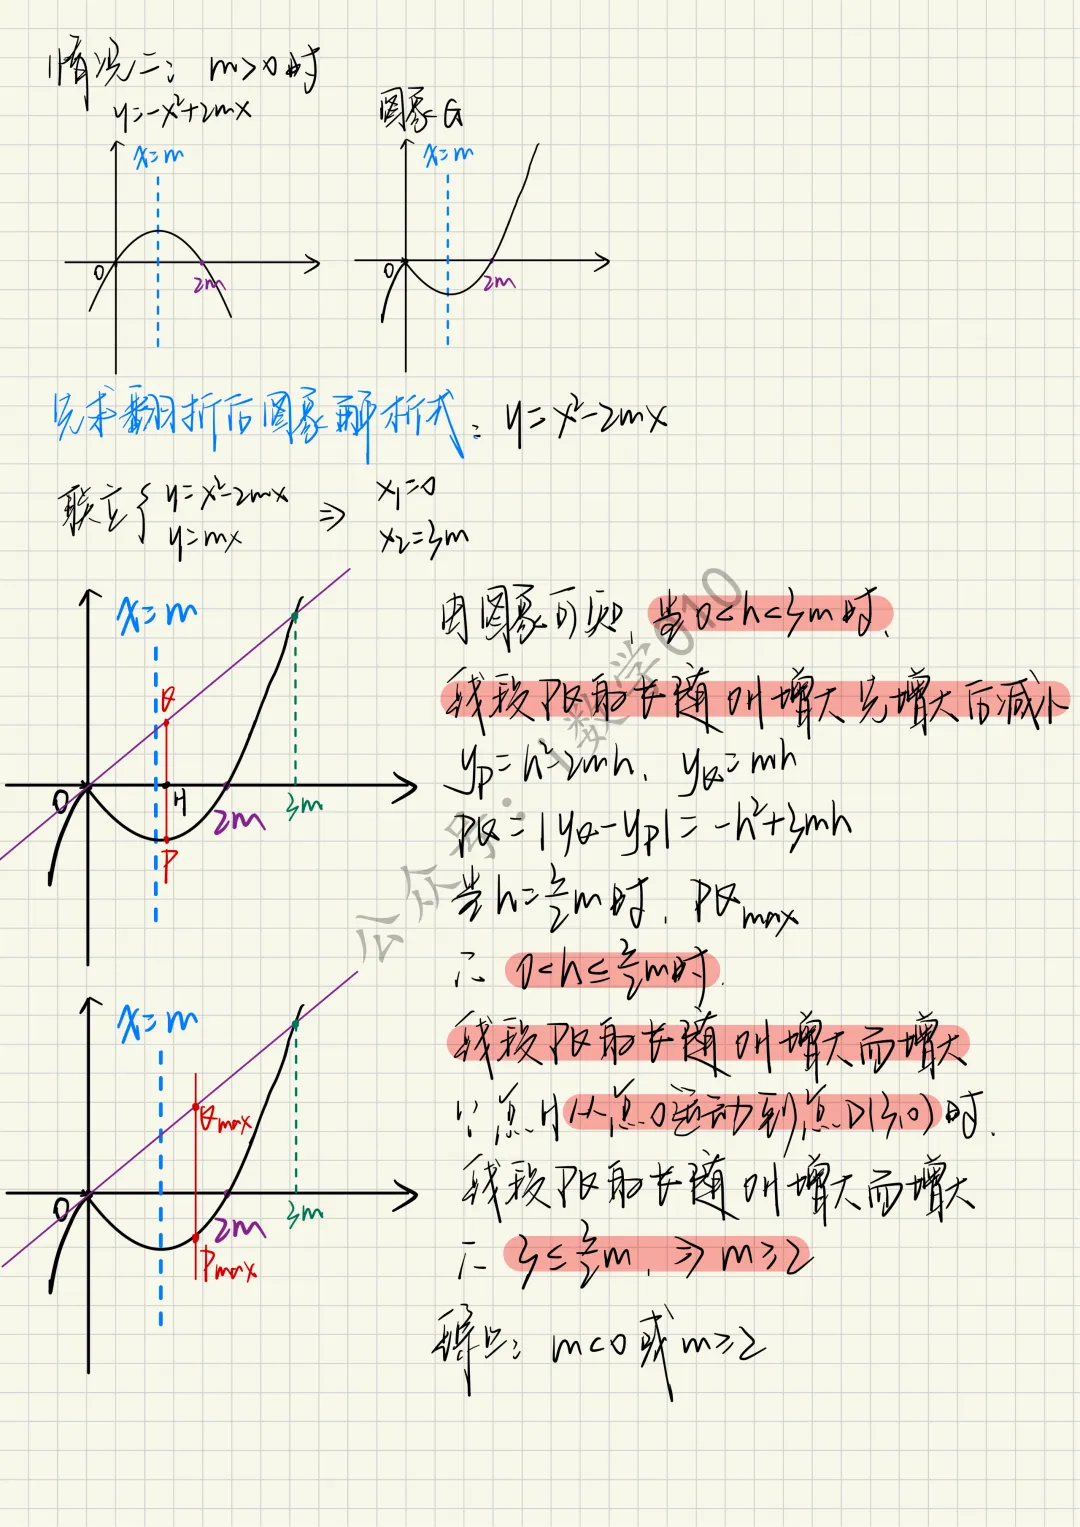 情况二: m>0时
y=-x²+2mx
图象G
x=m
x=m
O
2m
O
2m
先求翻折后图象解析式: y=x²-2mx
联立{y=x²-2mx
y=mx
⇒
x₁=0
x₂=3m
x=m
Q
O
H
2m
3m
P
由图象可知,当0<h<3m时,
线段PQ的长随OH增大先增大后减小
yP=h²-2mh, yQ=mh
PQ=|yQ-yP|=-h²+3mh
当h=3/2m时, PQmax
∴ 0<h≤3/2m时,
x=m
Qmax
O
2m
3m
Pmax
线段PQ的长随OH增大而增大
∵点H从点O运动到点D(3,0)时,
线段PQ的长随OH增大而增大
∴ 3≤3/2m, ⇒ m≥2
综上: m<0或m≥2
公众号:数学010